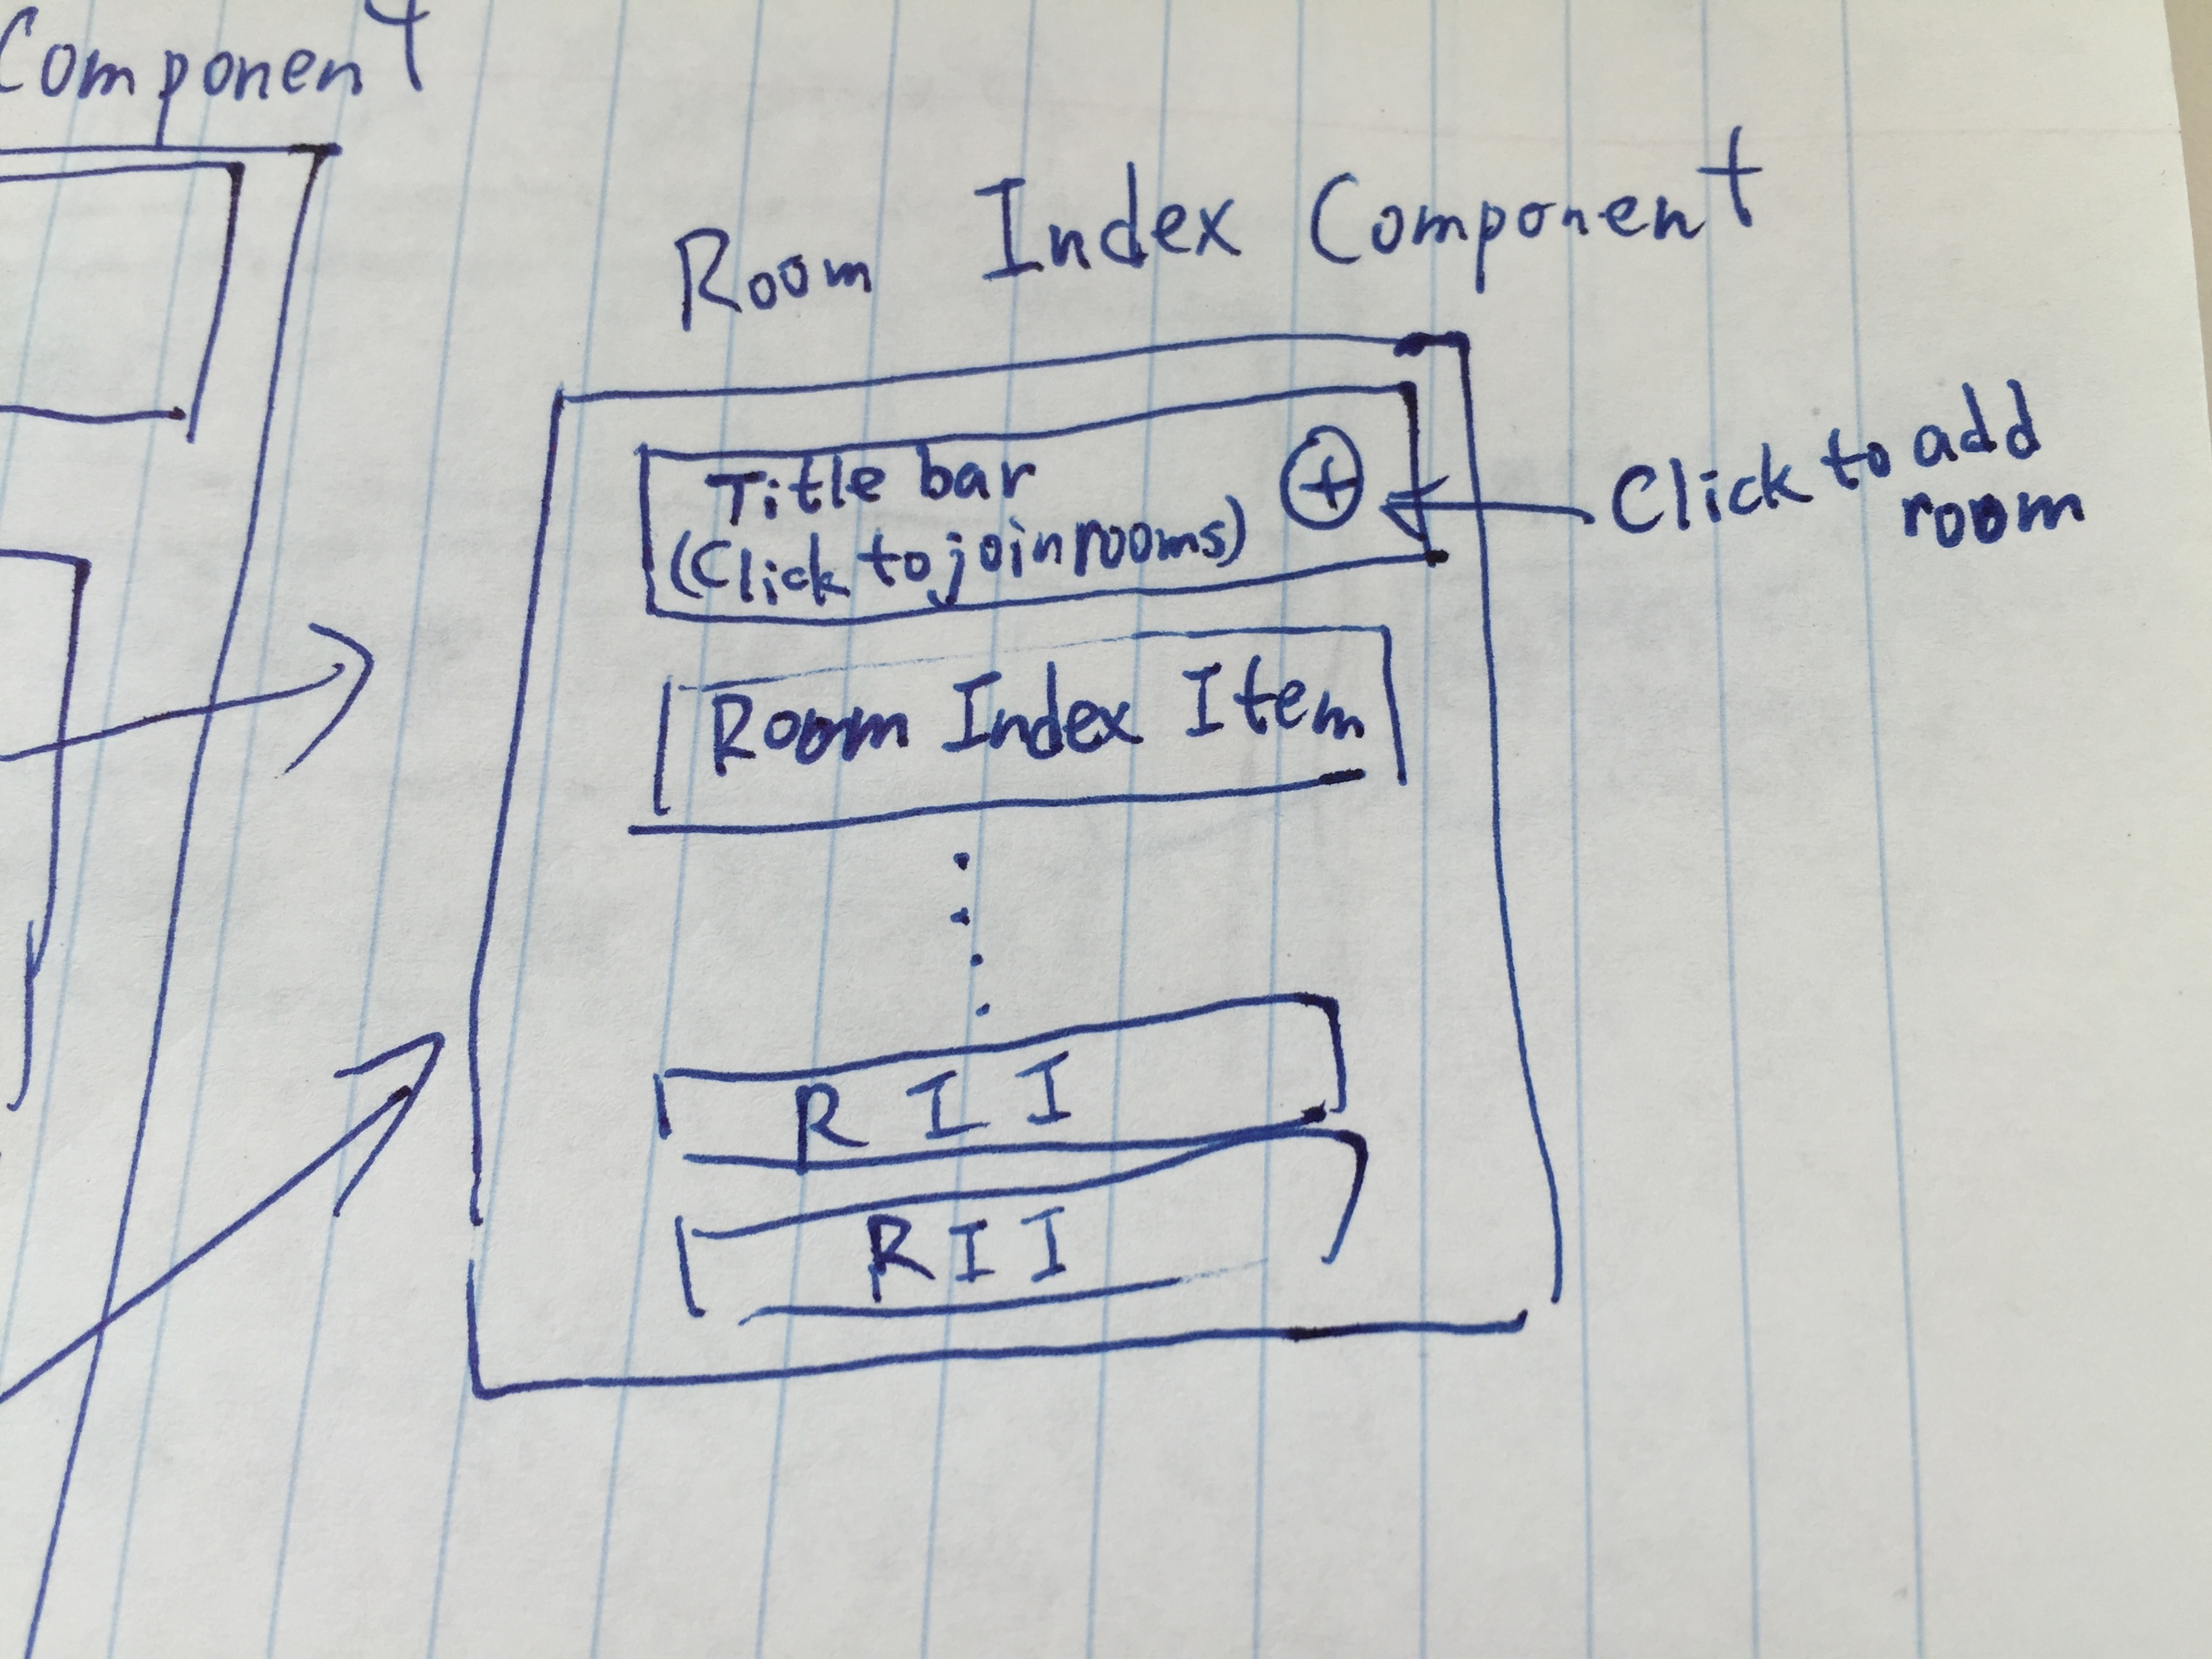 Component
Room Index Component
Title bar
(Click to join rooms)
+
Click to add
room
Room Index Item
RII
RII